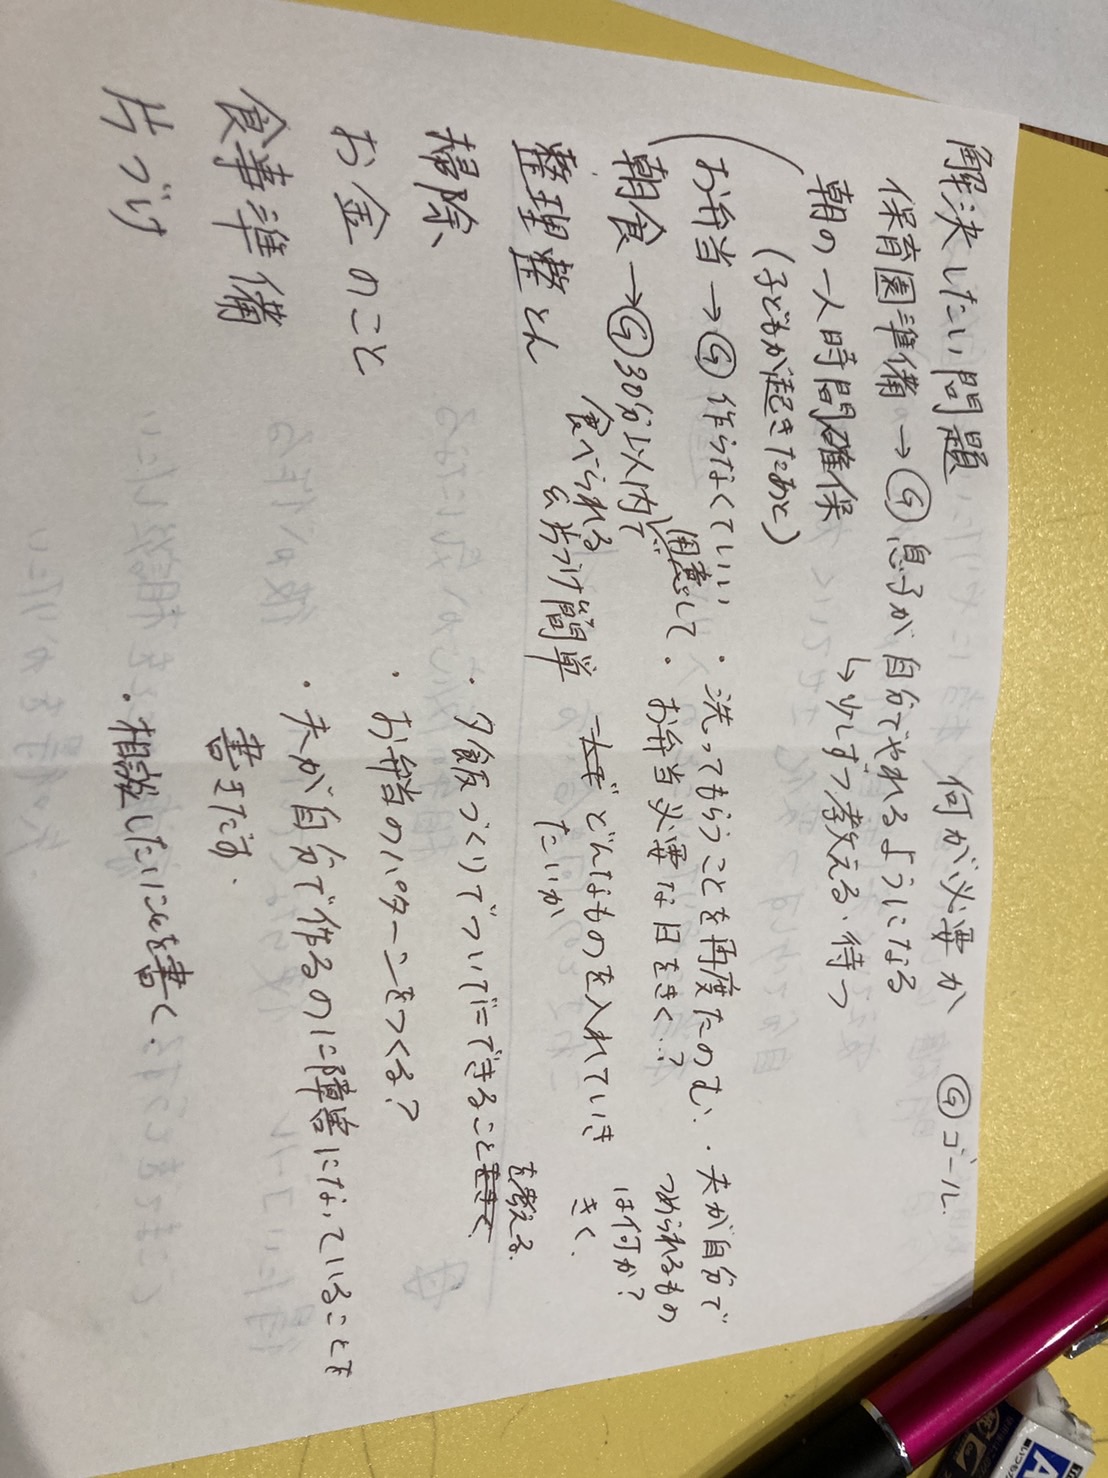 解決したい問題　何が必要か　Ⓖゴール
保育園準備→Ⓖ息子が自分でやれるようになる
↳少しずつ教える・待つ
朝の一人時間確保
(子どもが起きたあと)
お弁当→Ⓖ作らなくていい
・洗ってもらうことを再度たのむ
・夫が自分でつめられるものは何か?
きく、
用意して
・お弁当必要な日をきく?
朝食→Ⓖ30分以内で
食べられる
片づけ簡単
どんなものを入れていき
たいか
整理整とん
・夕飯づくりでついでにできること
を教える
掃除
・お弁当のパターンをつくる?
お金のこと
・夫が自分で作るのに障害になっていることを
書きだす.
食事準備
・相談したいことを書く.
片づけ